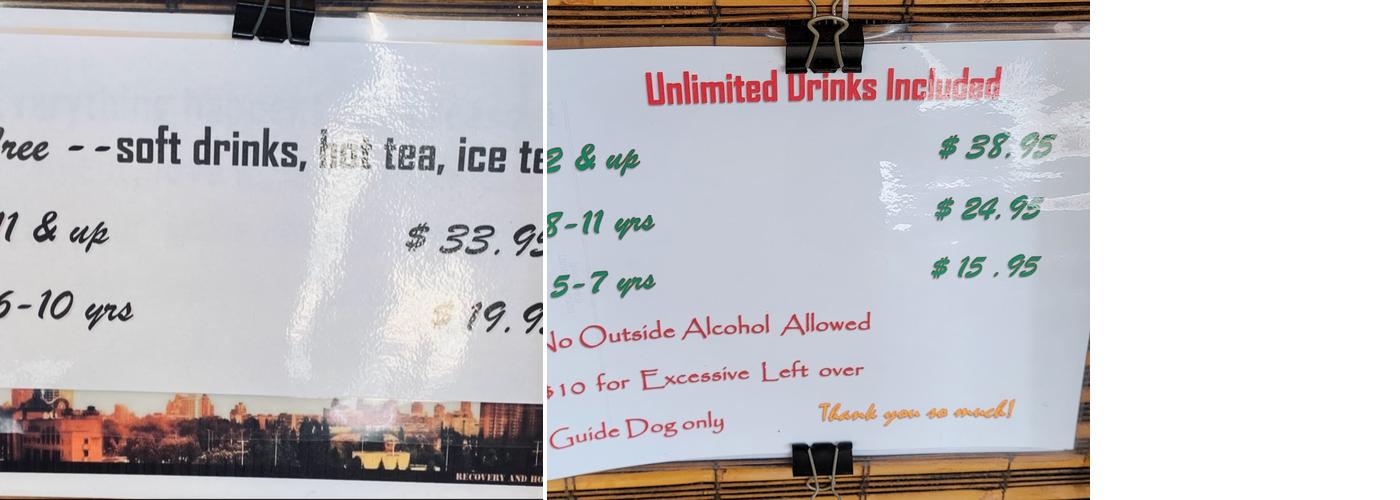 free --soft drinks, hot tea, ice
11 & up $ 33.95
6-10 yrs $ 19.9
RECOVERY AND
Unlimited Drinks Included
2 & up $ 38.95
8-11 yrs $ 24.95
5-7 yrs $ 15 .95
No Outside Alcohol Allowed
$10 for Excessive Left over
Guide Dog only
Thank you so much!